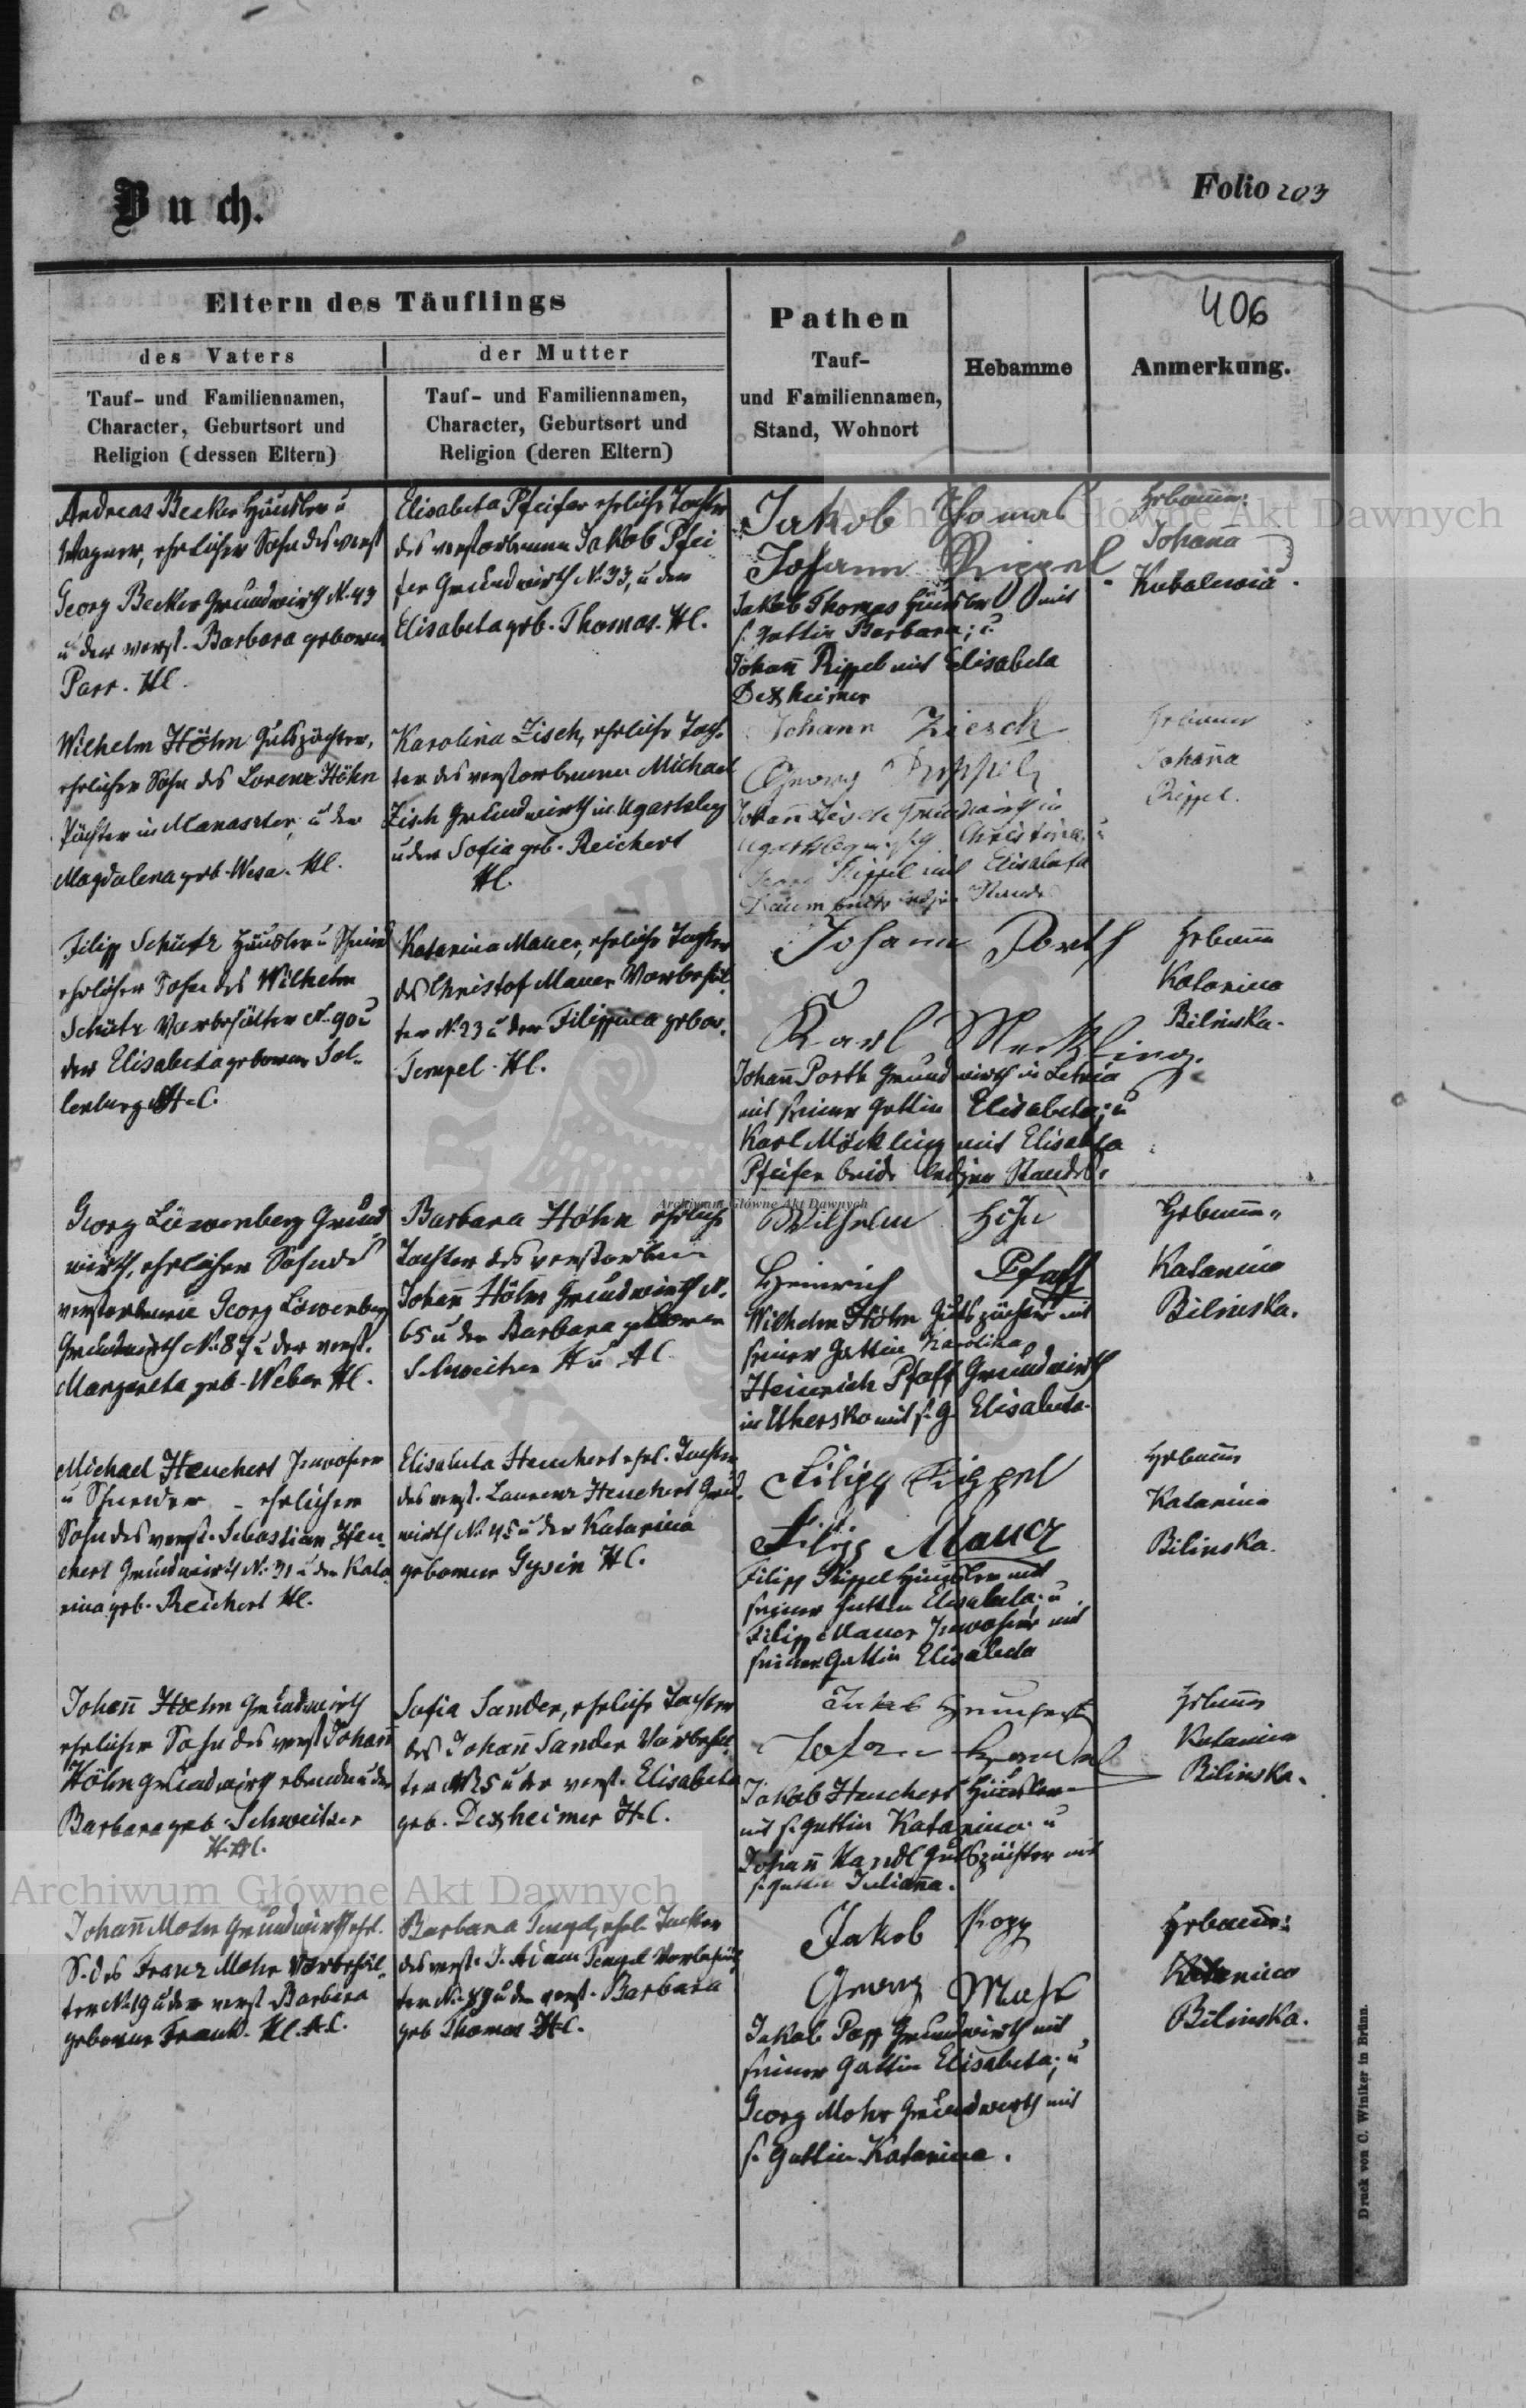 Buch.
Folio 203
406
Eltern des Täuflings
des Vaters
der Mutter
Tauf- und Familiennamen,
Character, Geburtsort und
Religion (dessen Eltern)
Tauf- und Familiennamen,
Character, Geburtsort und
Religion (deren Eltern)
Pathen
Tauf-
und Familiennamen,
Stand, Wohnort
Hebamme
Anmerkung.
Andreas Becker Häusler u
Wagner, ehrlicher Sohn des verst
Georg Becker Grundwirth N. 43
u der verst. Barbara geboren
Parr. HC.
Elisabeta Pfeifer ehrliche Tochter
des verstorbenen Jakob Pfei
fer Grundwirth No 33, u der
Elisabeta geb. Thomas. HC.
Jakob Thomas
Johann Rippel
Jakob Thomas Häusler mit
s. Gattin Barbara; u
Johann Rippel mit Elisabeta
Dexheimer
Hebamme:
Johana
Wilhelm Höhn Gutspächter,
ehrlicher Sohn des Lorenz Höhn
Pächter in Manaster, u der
Magdalena geb. Wesa. HC.
Karolina Zisch, ehrliche Toch
ter des verstorbenen Michael
Zisch Grundwirth in Ugartsberg
u der Sofia geb. Reichert
HC.
Johann Ziesch
Georg Rippel
Johann Zisch Grundwirth in
Christina, u
Georg Rippel mit Elisabeta
Hebamme
Johanna
Rippel.
Filipp Schütz Häusler u Schmied
ehrlicher Sohn des Wilhelm
Schütz Vorbehälter N. 90 u
der Elisabeta geboren Sol-
lenburg H.C.
Katarina Mauer, ehrliche Tochter
des Christof Mauer Vorbehäl
ter No 23 u der Filippina gebor.
Tempel. HC.
Johann Porth
Karl Meckling.
Johann Porth Grundwirth in
mit seiner Gattin Elisabeta; u
Karl Möckling mit Elisabeta
Pfeifer beide ledigen Standes.
Hebamme
Katarina
Bilinska.
Georg Löwenberg Grund
wirth, ehrlicher Sohn des
verstorbenen Georg Löwenberg
Grundwirth No 87 u der verst.
Margareta geb. Weber HC.
Barbara Höhn ehrliche
Tochter des verstorbenen
Johann Höhn Grundwirth N.
65 u der Barbara geboren
Schweitzer H u AC
Wilhelm Höhn
Heinrich Pfaff
Wilhelm Höhn Gutspächter mit
seiner Gattin Karolina,
Heinrich Pfaff Grundwirth
in Uhersko mit s. G. Elisabeta.
Hebamme
Katarina
Bilinska.
Michael Heuchert Inwohner
u Schneider - ehrlicher
Sohn des verst. Sebastian Heu-
chert Grundwirth No 31 u der Kata
rina geb. Reichert HC.
Elisabeta Heuchert ehrl. Tochter
des verst. Laurenz Heuchert Grund
wirth No 45 u der Katarina
geborene Gysin HC.
Filipp Rippel
Filipp Mauer
Filipp Rippel Häusler mit
seiner Gattin Elisabeta; u
Filipp Mauer Inwohner mit
seiner Gattin Elisabeta
Hebamme
Katarina
Bilinska.
Johann Hoehn Grundwirth
ehrlicher Sohn des verst Johann
Höhn Grundwirth ebenda u der
Barbara geb. Schweitzer
H.AC.
Sofia Sander, ehrliche Tochter
des Johann Sander Vorbehäl
ter No 25 u der verst. Elisabeta
geb. Dexheimer H.C.
Jakob Heuchert
Jakob Heuchert Häusler
mit s. Gattin Katarina; u
Johann Kandl Gutspächter mit
s. Gattin Julianna.
Hebamme
Katarina
Bilinska.
Johann Mohr Grundwirth ehrl.
S. des Franz Mohr Vorbehäl-
ter No 19 u der verst Barbara
geborene Frank. HC. AC.
Barbara Tempel, ehrl. Tochter
des verst. J. Adam Tempel Vorbehäl
ter No 89 u der verst. Barbara
geb Thomas HC.
Jakob Popp
Georg Mohr
Jakob Popp Grundwirth mit
seiner Gattin Elisabeta; u
Georg Mohr Grundwirth mit
s. Gattin Katarina.
Hebamme:
Katarina
Bilinska.
Druck von C. Winiker in Brünn.
Archiwum Główne Akt Dawnych
Archiwum Główne Akt Dawnych
Archiwum Główne Akt Dawnych